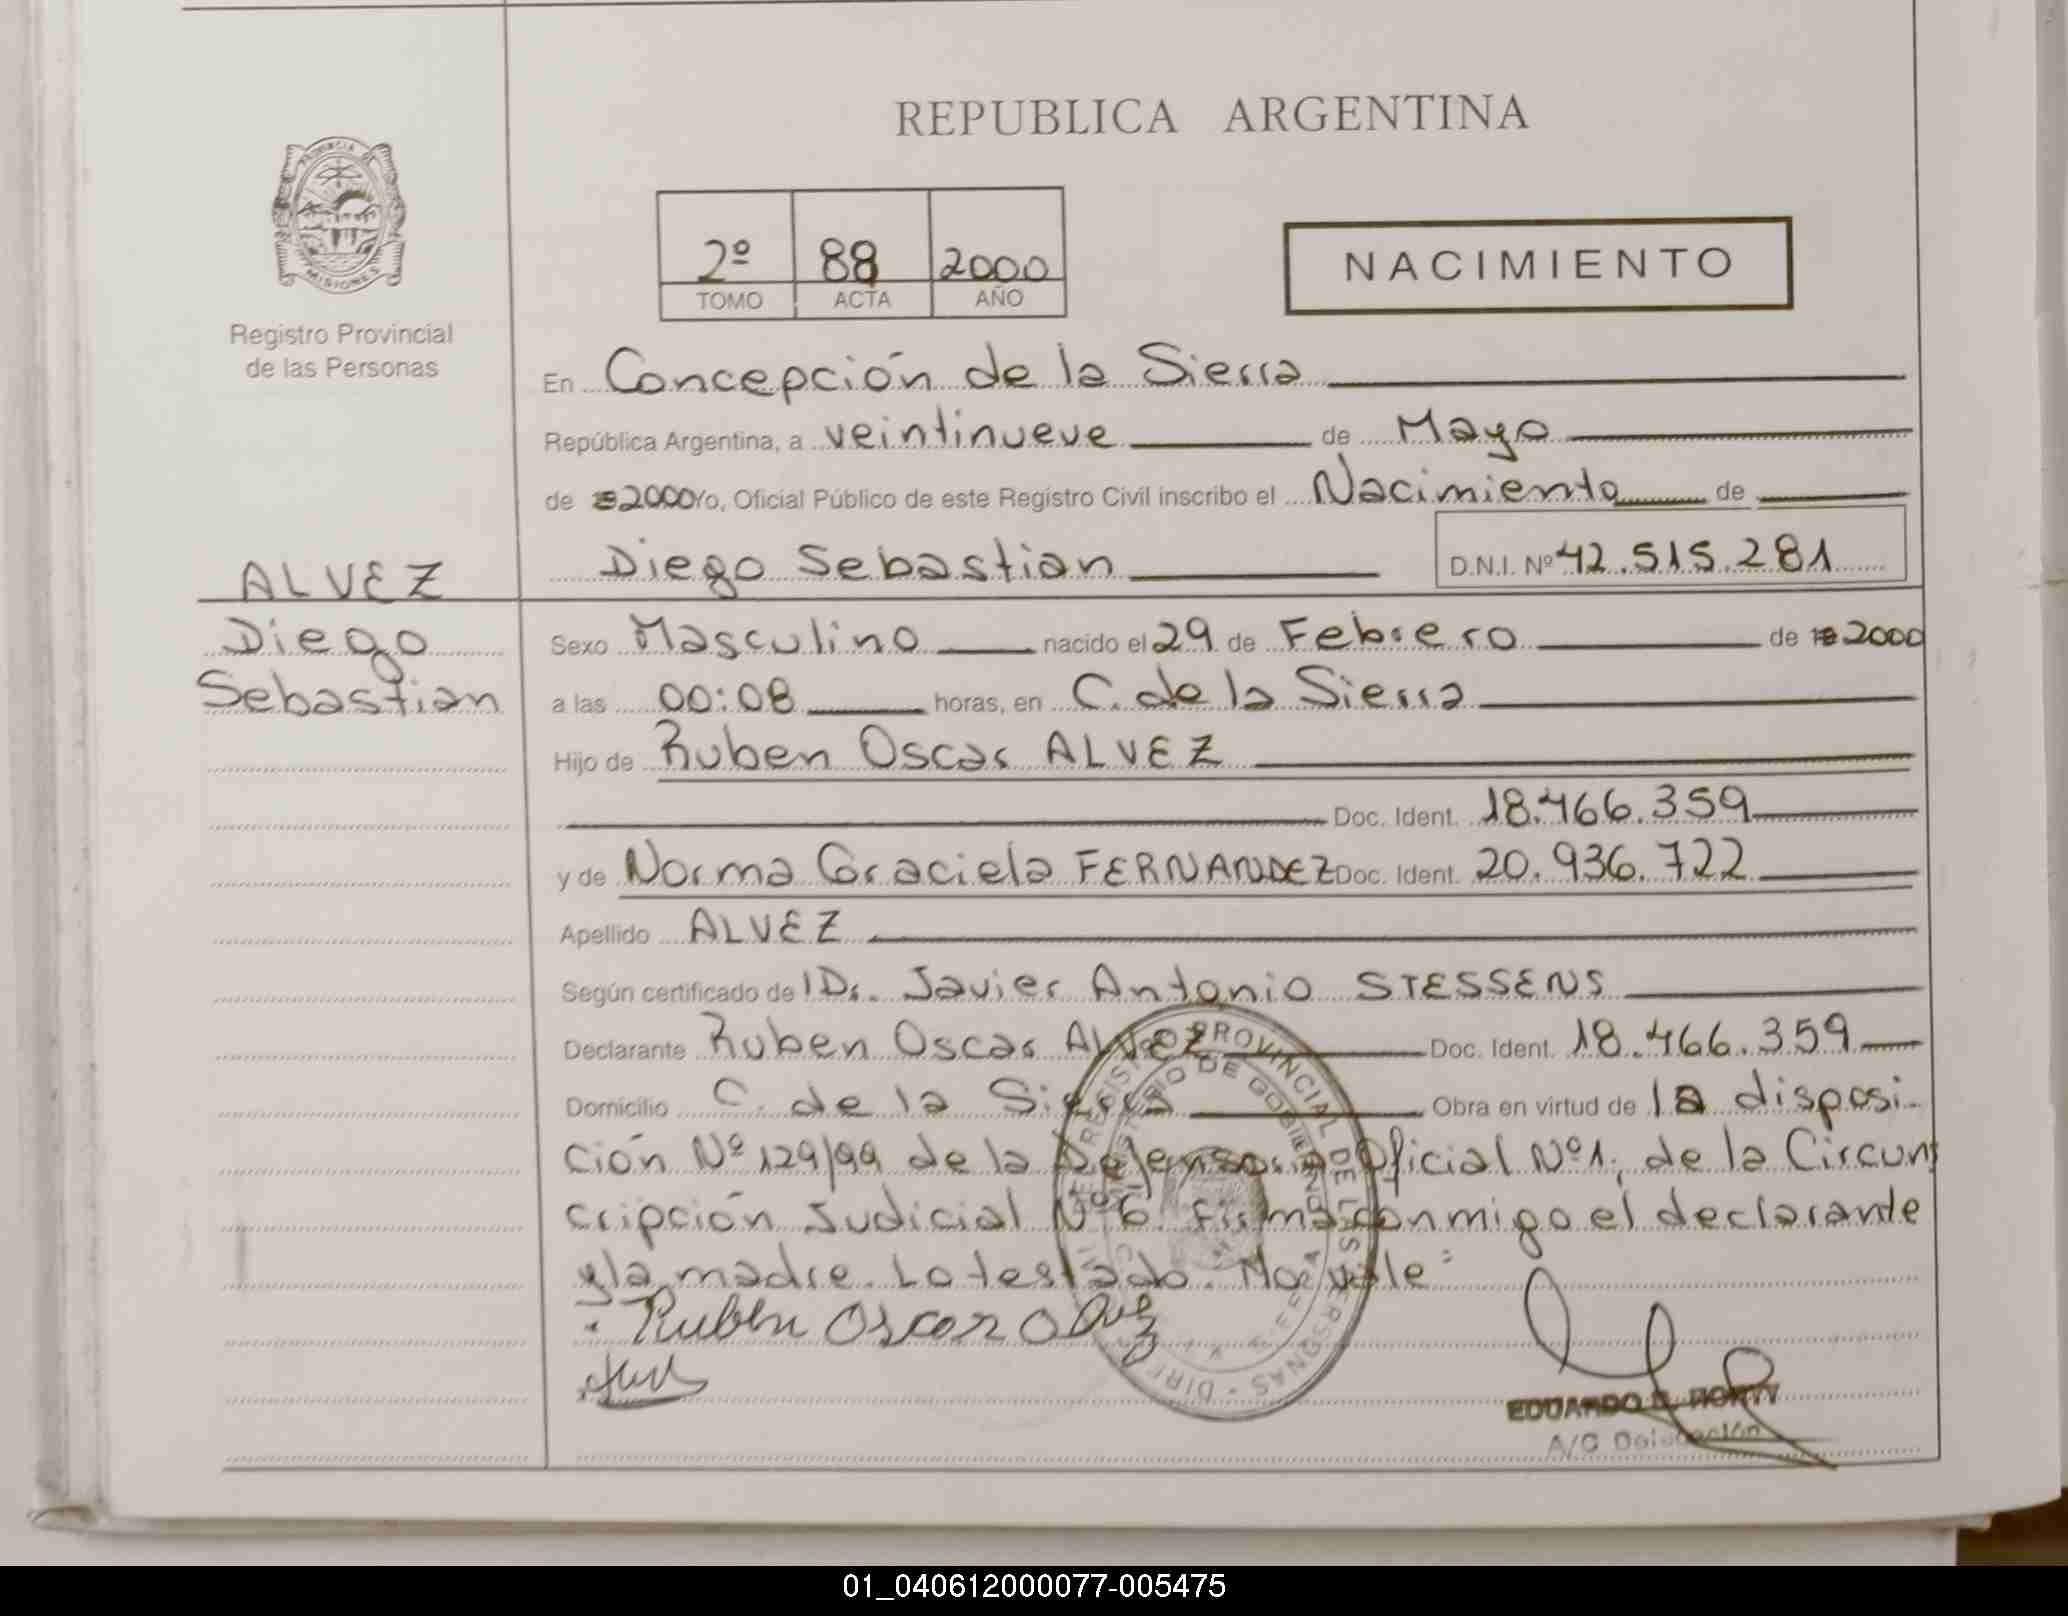 REPUBLICA ARGENTINA
PROVINCIA DE MISIONES
Registro Provincial
de las Personas
2º 88 2000
TOMO ACTA AÑO
NACIMIENTO
En Concepción de la Sierra
República Argentina, a veintinueve de Mayo
de 2000 Yo, Oficial Público de este Registro Civil inscribo el Nacimiento de
Diego Sebastian D.N.I. Nº 42.515.281
ALVEZ
Diego
Sebastian
Sexo Masculino nacido el 29 de Febrero de 2000
a las 00:08 horas, en C. de la Sierra
Hijo de Ruben Oscar ALVEZ
Doc. Ident. 18.466.359
y de Norma Graciela FERNANDEZ Doc. Ident. 20.936.722
Apellido ALVEZ
Según certificado de l Dr. Javier Antonio STESSENS
Declarante Ruben Oscar ALVEZ Doc. Ident. 18.466.359
Domicilio C. de la Sierra Obra en virtud de la disposi-
ción Nº 129/99 de la Defensoria Oficial Nº1, de la Circuns
cripción Judicial Nº 6. Firma conmigo el declarante
y la madre. Lo testado. No vale:
Ruben Oscar Alvez
REGISTRO PROVINCIAL DE LAS PERSONAS
MINISTERIO DE GOBIERNO
EDUARDO
A/C Delegación
01_040612000077-005475